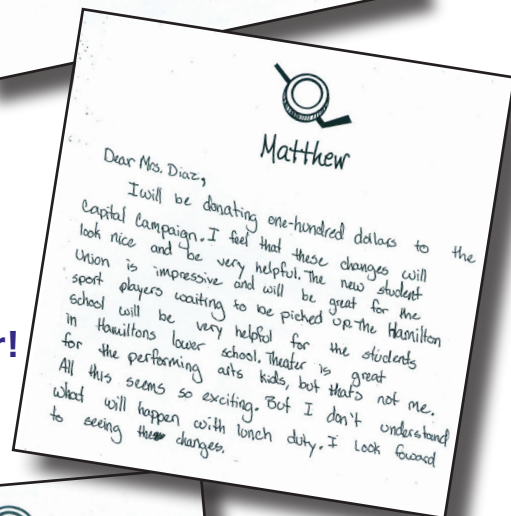 Matthew
Dear Mrs. Diaz,
I will be donating one-hundred dollars to the
Capital Campaign. I feel that these changes will
look nice and be very helpful. The new student
Union is impressive and will be great for the
sport players waiting to be picked up. The Hamilton
school will be very helpful for the students
in Hamiltons lower school. Theater is great
for the performing arts kids, but thats not me.
All this seems so exciting. But I don't understand
what will happen with lunch duty. I look foward
to seeing the changes.
r!